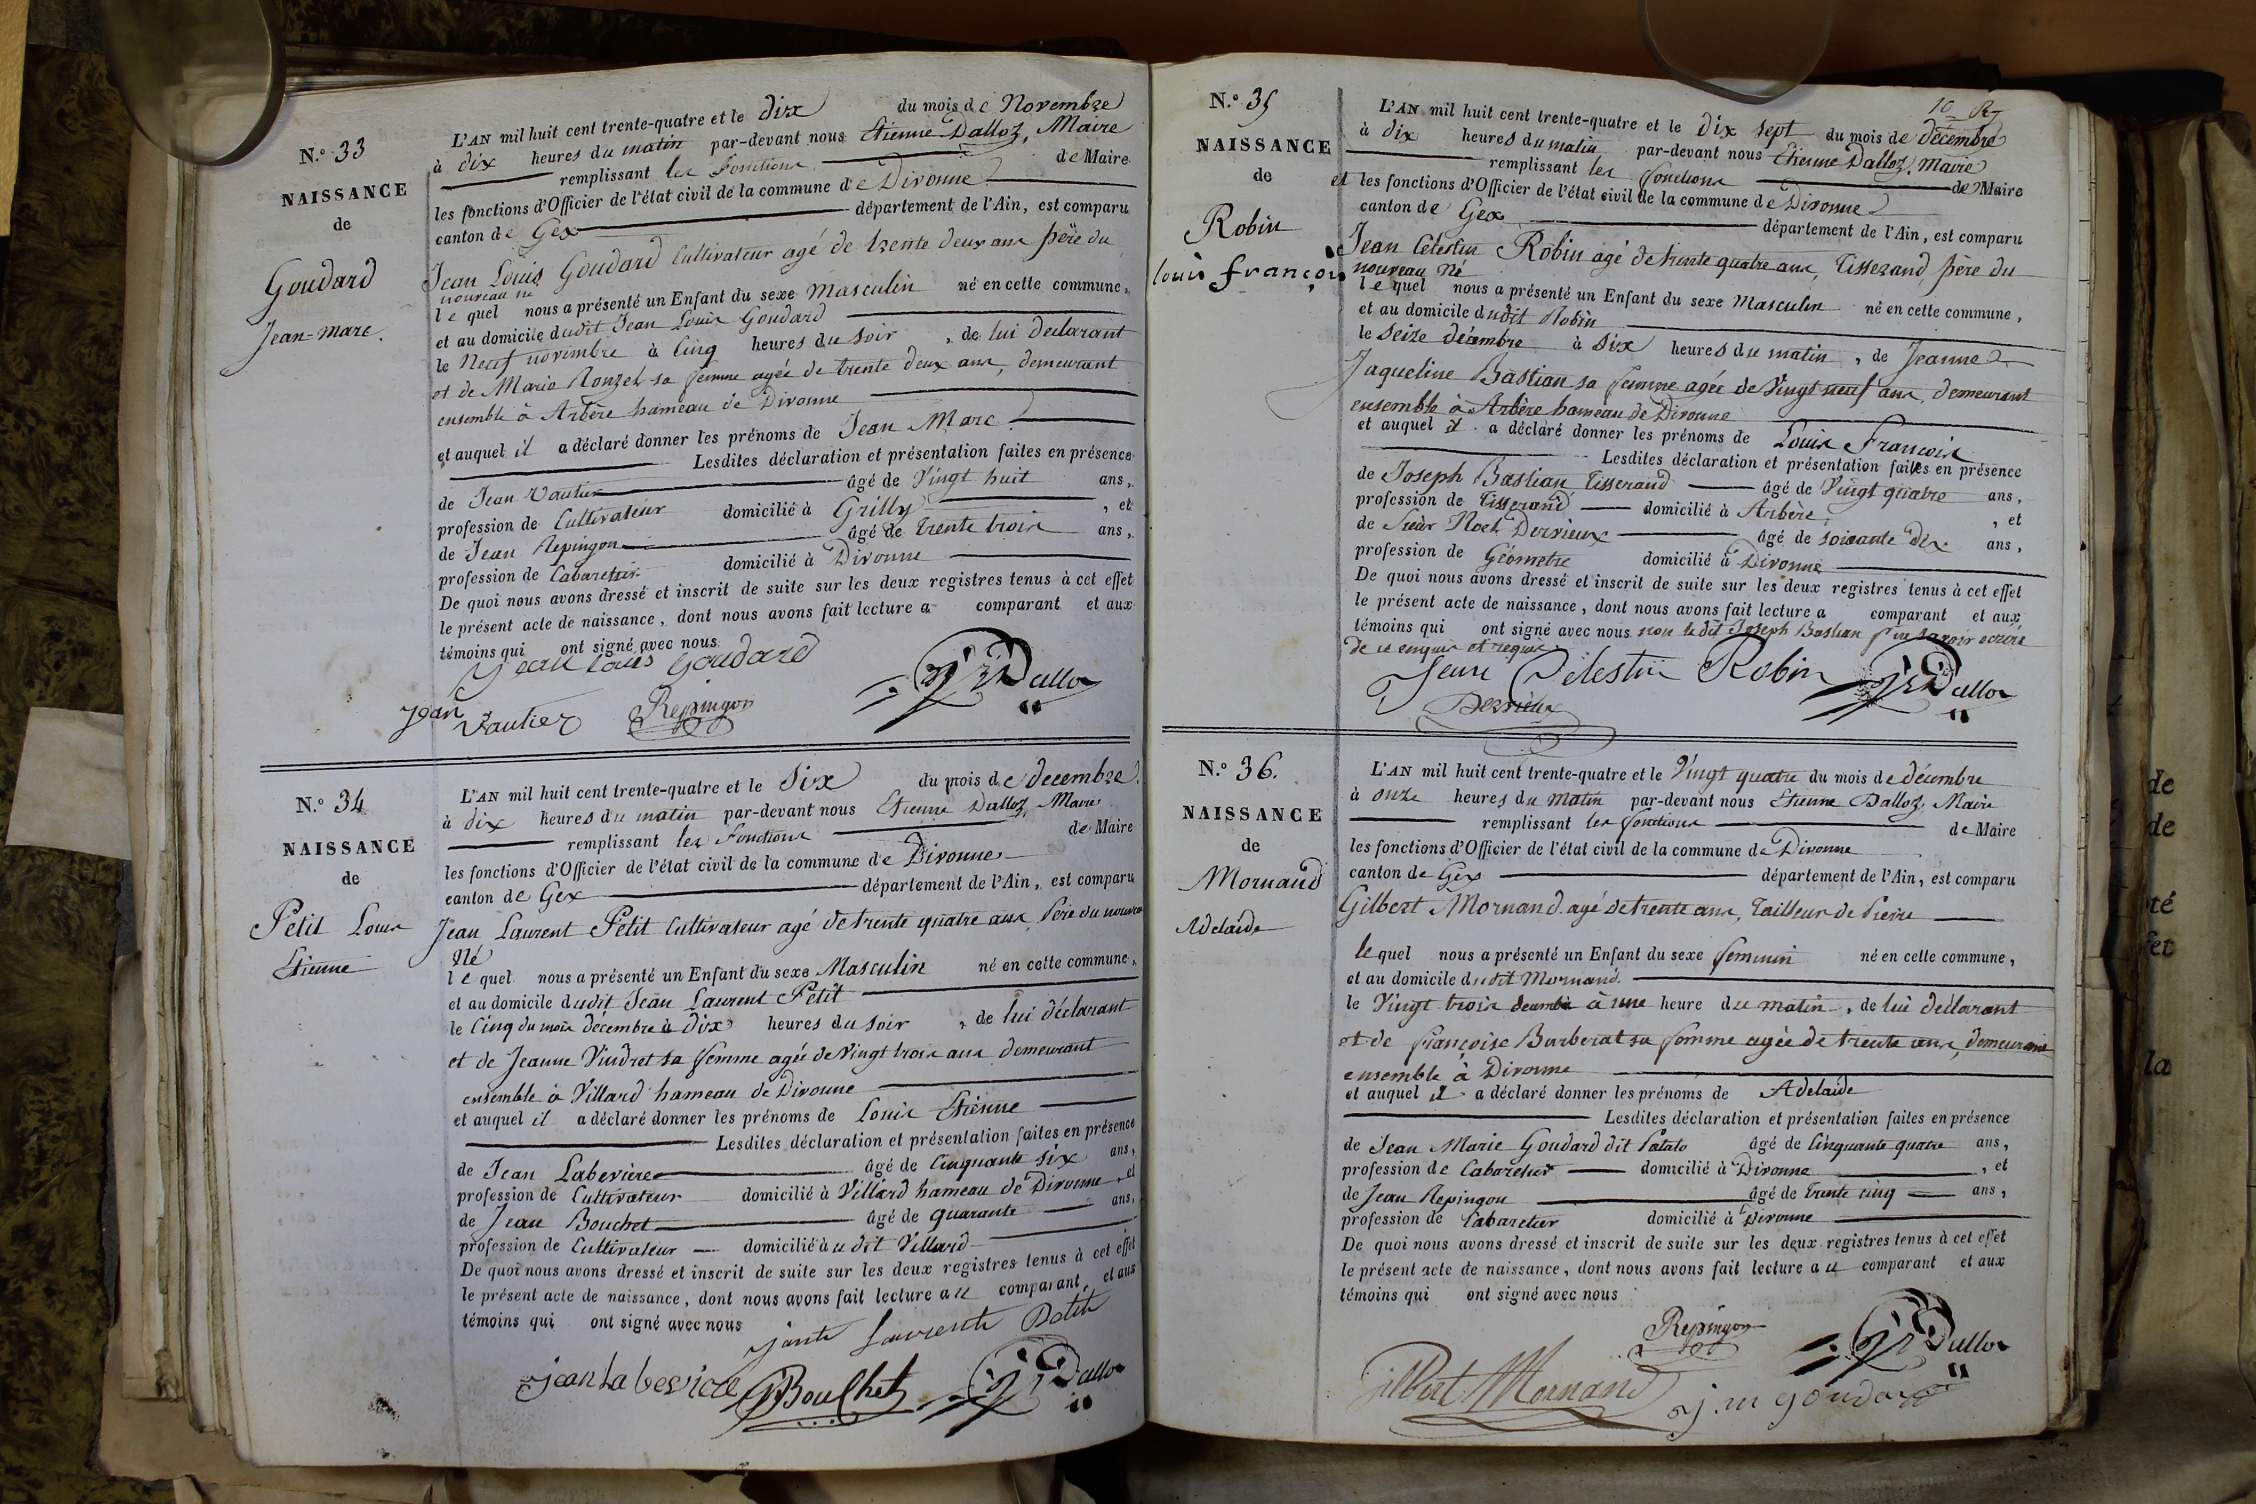 N.° 33
NAISSANCE
de
Goudard
Jean-marc.
L'AN mil huit cent trente-quatre et le dix du mois de Novembre
à dix heures du matin par-devant nous Etienne Dalloz, Maire
remplissant les fonctions de Maire
les fonctions d'Officier de l'état civil de la commune de Divonne
canton de Gex département de l'Ain, est comparu
Jean Louis Goudard Cultivateur agé de trente deux ans père du
nouveau né
le quel nous a présenté un Enfant du sexe masculin né en cette commune,
et au domicile dudit Jean Louis Goudard
le Neuf novembre à Cinq heures du soir, de lui declarant
et de Marie Ronzel sa femme agée de trente deux ans, demeurant
ensemble à Arbère hameau de Divonne
et auquel il a déclaré donner les prénoms de Jean Marc
Lesdites déclaration et présentation faites en présence
de Jean Vautier âgé de Vingt huit ans,
profession de Cultivateur domicilié à Grilly, et
de Jean Repingon âgé de trente trois ans,
profession de Cabaretier domicilié à Divonne
De quoi nous avons dressé et inscrit de suite sur les deux registres tenus à cet effet
le présent acte de naissance, dont nous avons fait lecture a comparant et aux
témoins qui ont signé avec nous
Jean Louis Goudard
Jean Vautier Repingon Dalloz
N.° 34
NAISSANCE
de
Petit Louis
Etienne
L'AN mil huit cent trente-quatre et le Six du mois de decembre
à dix heures du matin par-devant nous Etienne Dalloz, Maire
remplissant les fonctions de Maire
les fonctions d'Officier de l'état civil de la commune de Divonne
canton de Gex département de l'Ain, est comparu
Jean Laurent Petit Cultivateur agé de trente quatre ans, Père du nouveau
Né
le quel nous a présenté un Enfant du sexe Masculin né en cette commune,
et au domicile dudit Jean Laurent Petit
le Cinq du mois décembre à dix heures du soir, de lui déclarant
et de Jeanne Vindret sa femme agée de Vingt trois ans demeurant
ensemble à Villard hameau de Divonne
et auquel il a déclaré donner les prénoms de Louis Etienne
Lesdites déclaration et présentation faites en présence
de Jean Labevière âgé de Cinquante six ans,
profession de Cultivateur domicilié à Villard hameau de Divonne, et
de Jean Bouchet âgé de quarante ans,
profession de Cultivateur domicilié à u dit Villard
De quoi nous avons dressé et inscrit de suite sur les deux registres tenus à cet effet
le présent acte de naissance, dont nous avons fait lecture a u comparant et aux
témoins qui ont signé avec nous
Laurent Petit
jean Labeviere Bouchet Dalloz
N.° 35
NAISSANCE
de
Robin
louis françois
10
L'AN mil huit cent trente-quatre et le dix sept du mois de décembre
à dix heures du matin par-devant nous Etienne Dalloz, Maire
remplissant les fonctions de Maire
et les fonctions d'Officier de l'état civil de la commune de Divonne
canton de Gex département de l'Ain, est comparu
Jean Célestin Robin agé de trente quatre ans, Tisserand, père du
nouveau né
le quel nous a présenté un Enfant du sexe Masculin né en cette commune,
et au domicile dudit Robin
le Seize décembre à six heures du matin, de Jeanne
Jaqueline Bastian sa femme agée de Vingt neuf ans, demeurant
ensemble à Arbère hameau de Divonne
et auquel il a déclaré donner les prénoms de Louis François
Lesdites déclaration et présentation faites en présence
de Joseph Bastian Tisserand âgé de Vingt quatre ans,
profession de Tisserand domicilié à Arbère, et
de Sieur Noel Derrieux âgé de soixante dix ans,
profession de Géometre domicilié à Divonne
De quoi nous avons dressé et inscrit de suite sur les deux registres tenus à cet effet
le présent acte de naissance, dont nous avons fait lecture a comparant et aux
témoins qui ont signé avec nous non le dit Joseph Bastian savoir ecrire
de ce enquis et requis
Jean Celestin Robin Dalloz
Derrieux
N.° 36.
NAISSANCE
de
Mornand
Adelaide
L'AN mil huit cent trente-quatre et le Vingt quatre du mois de décembre
à onze heures du matin par-devant nous Etienne Dalloz, Maire
remplissant les fonctions de Maire
les fonctions d'Officier de l'état civil de la commune de Divonne
canton de Gex département de l'Ain, est comparu
Gilbert Mornand agé de trente ans, Tailleur de Pierre
le quel nous a présenté un Enfant du sexe feminin né en cette commune,
et au domicile dudit Mornand
le Vingt trois decembre à une heure du matin, de lui declarant
et de françoise Barberat sa femme agée de trente ans, demeurant
ensemble à Divonne
et auquel il a déclaré donner les prénoms de Adelaide
Lesdites déclaration et présentation faites en présence
de Jean Marie Goudard dit âgé de Cinquante quatre ans,
profession de Cabaretier domicilié à Divonne, et
de Jean Repingon âgé de trente cinq ans,
profession de Cabaretier domicilié à Divonne
De quoi nous avons dressé et inscrit de suite sur les deux registres tenus à cet effet
le présent acte de naissance, dont nous avons fait lecture a u comparant et aux
témoins qui ont signé avec nous
Repingon Dalloz
gilbert Mornand j. m goudard
de
de
té
fet
la